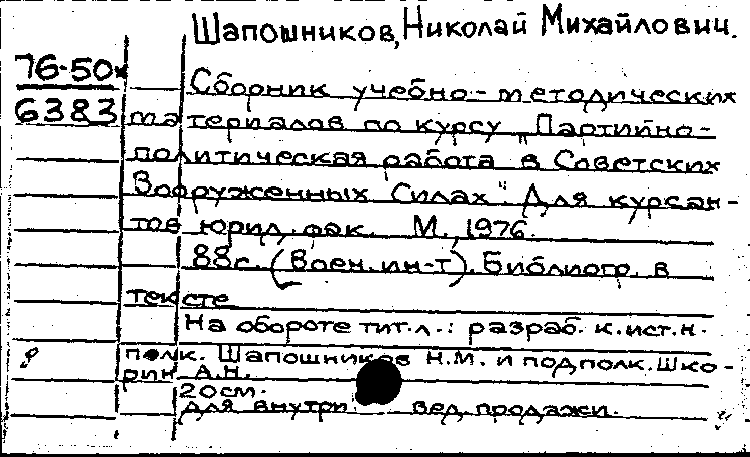 Шапошников, Николай Михайлович.
76-50х
6383
Сборник учебно-методических
материалов по курсу „Партийно-
политическая работа в Советских
Вооруженных Силах". Для курсан-
тов юрид. фак. М., 1976.
88с. (Воен. ин-т). Библиогр. в
тексте
На обороте тит.л.: разраб. к.ист.н.
полк. Шапошников Н.М. и подполк. Шко-
рин А.Н.
20см.
Для внутривед. продажи.